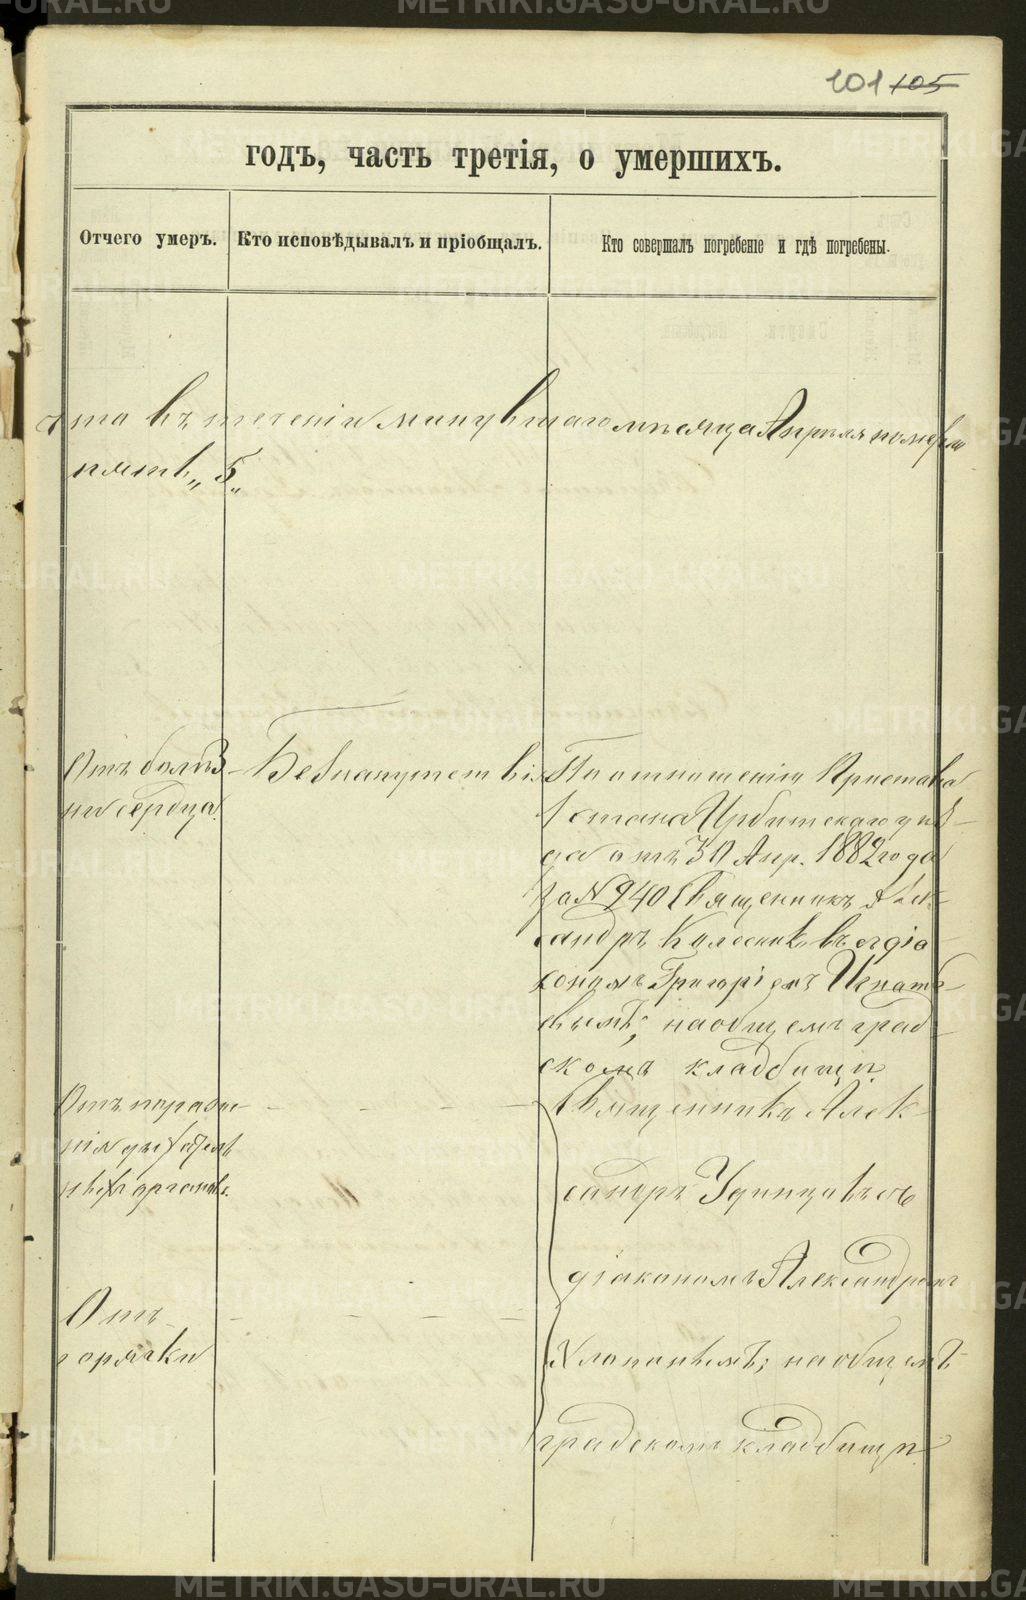 101 105
годъ, часть третія, о умершихъ.
Отчего умеръ.
Кто исповѣдывалъ и пріобщалъ.
Кто совершалъ погребеніе и гдѣ погребены.
что въ теченіи минувшаго мѣсяца Апрѣля померло
пять „5„
Отъ болѣз-
ни сердца.
Безъ напутствія
По отношенію Пристава
1 стана Ирбитскаго уѣз-
да отъ 30 Апр. 1882 года
за N 940 Священникъ Алек-
сандръ Колосниковъ съ діа-
кономъ Григоріемъ Игнать-
евымъ; на общемъ град-
скомъ кладбищѣ
Отъ пораже-
нія дыхатель
ныхъ органовъ.
Отъ
горячки
Священникъ Алек-
сандръ Удинцовъ съ
діакономъ Александромъ
Хлопинымъ; на общемъ
градскомъ кладбищѣ
METRIKI.GASO-URAL.RU